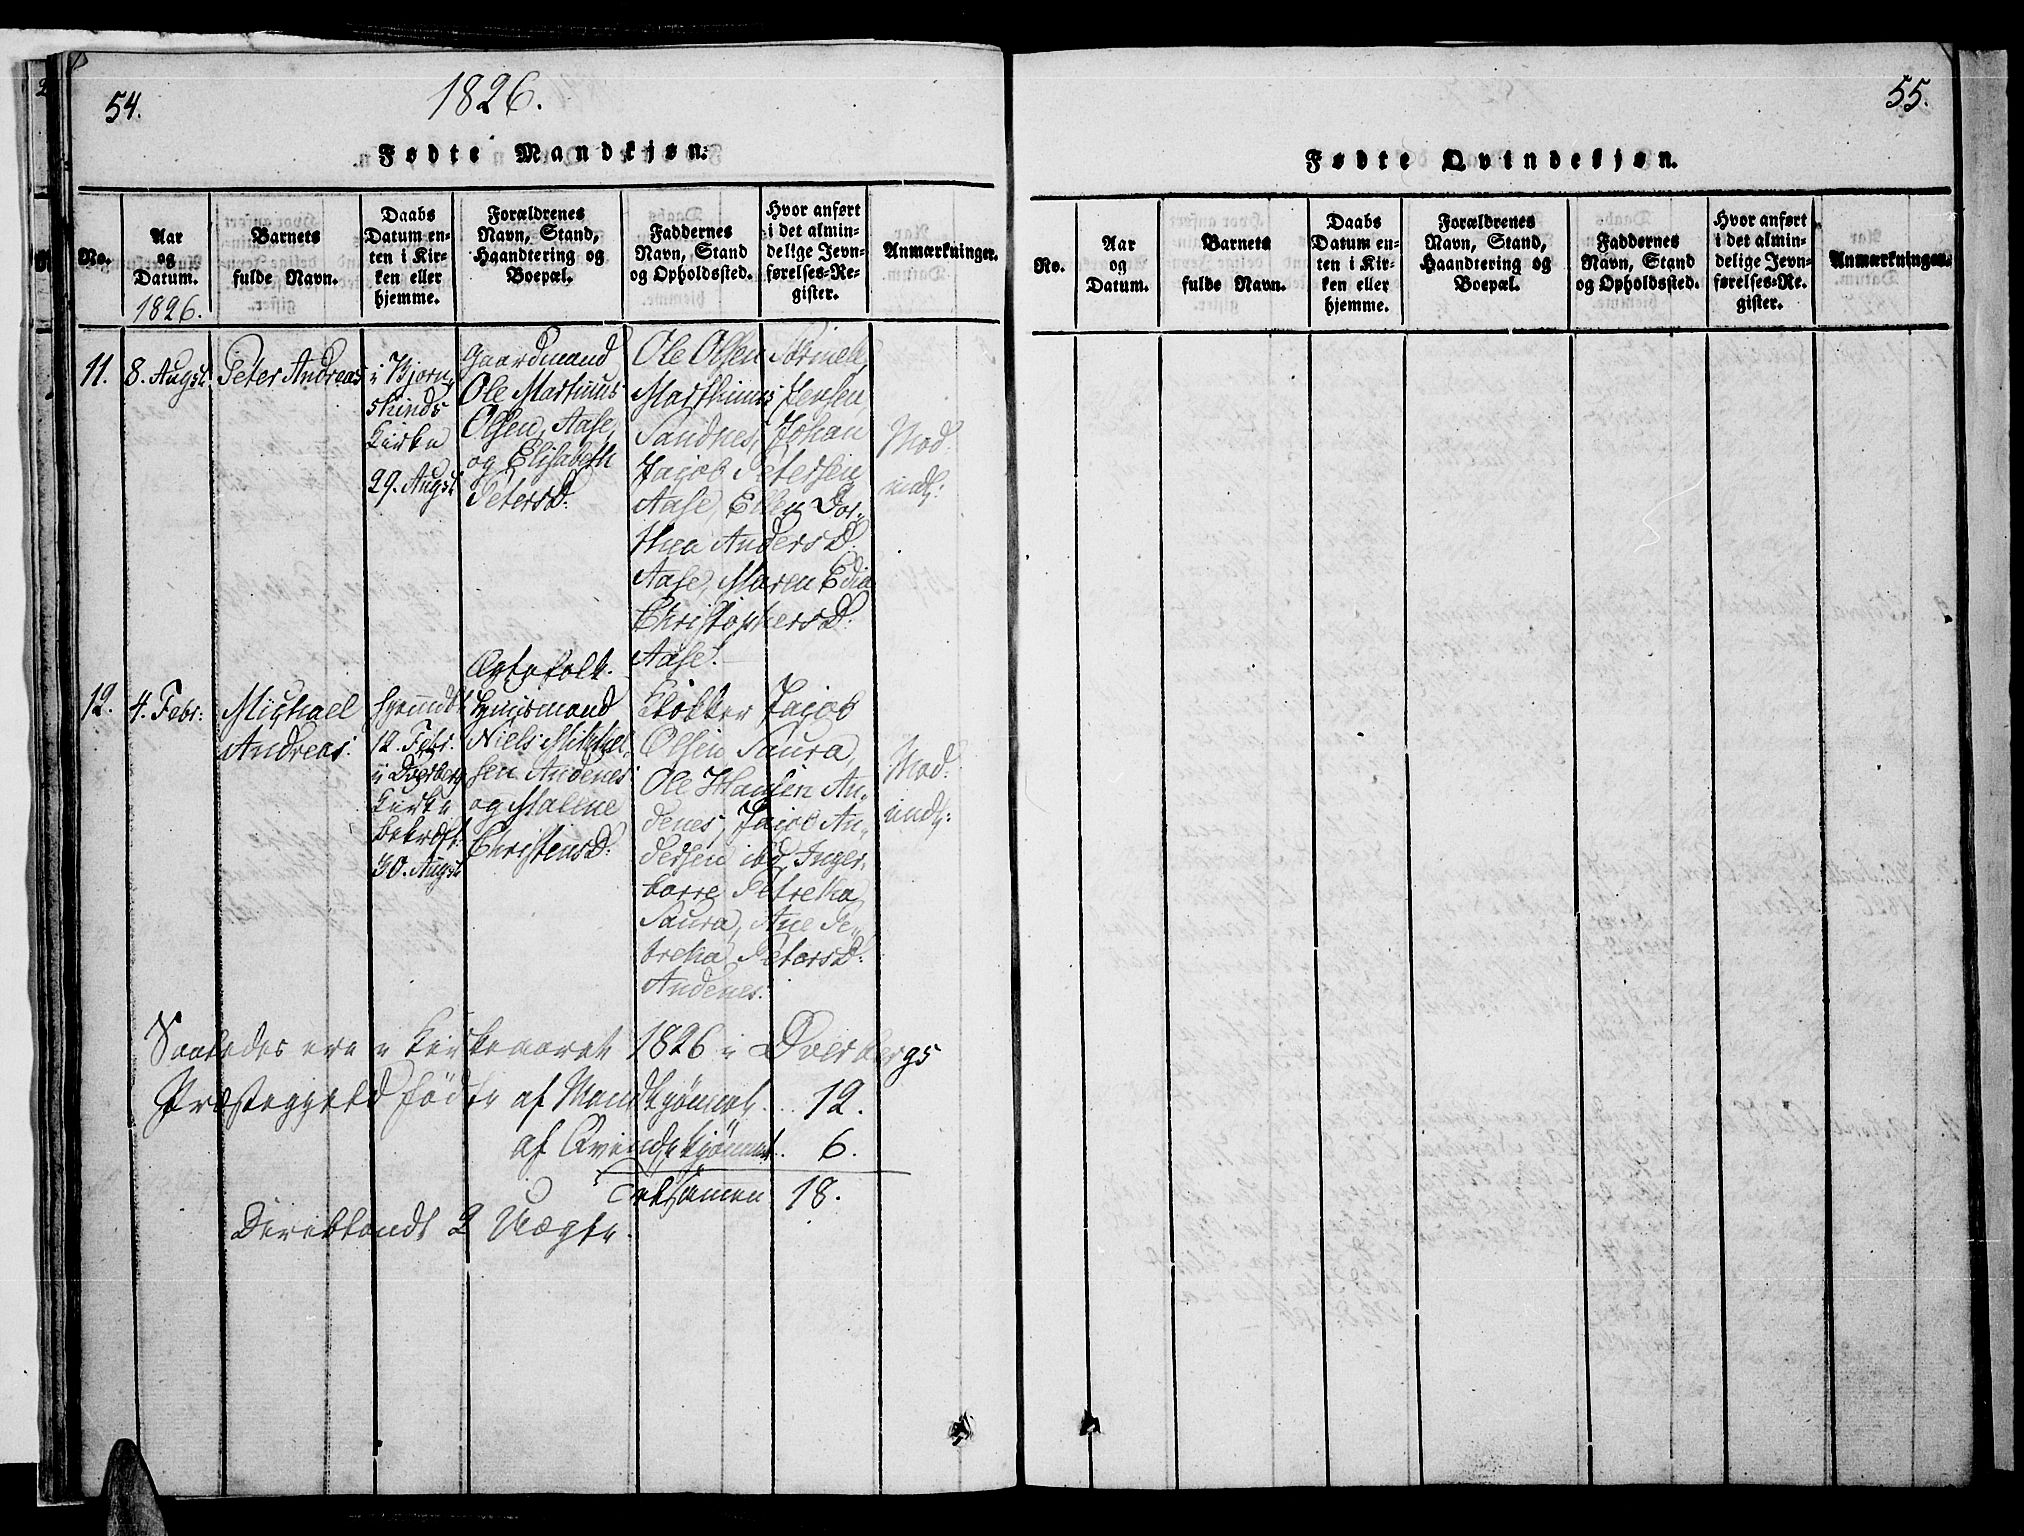 54.
1826.
Fødte Mandkjøn.
No.
Aar og Datum.
1826.
Barnets fulde Navn.
Daabs Datum enten i Kirken eller hjemme.
Forældrenes Navn, Stand, Haandtering og Boepæl.
Faddernes Navn, Stand og Opholdssted.
Hvor anført i det almindelige Jevnførelses-Register.
Anmærkninger.
11.
8. Augst.
Peter Andreas
i Bjørn-
skinds
Kirke
29. Augst
Gaardmand
Ole Martinus
Olsen, Aase,
og Elisabeth
Petersd:
Ægtefolk.
Ole Olsen
Marthinus Jensen,
Sandnes, Johan
Jacob Petersen
Aase, Ellen Dor-
thea Andersd.
Aase, Maren Edia
Christophersd:
Aase.
Mod.
indl:
12.
4. Febr:
Michael
Andreas
hjemmdt
12. Febr.
i Dverberg
Kirke
bekræft.
30. Augst
Huusmand
Niels Mikkel-
sen Andenes
og Malene
Christensd:
Klokker Jacob
Olsen Saura,
Ole Hansen An-
denes, Jacob An-
dersen ibd, Inger-
borre Petrekka
Saura, Ane Pe-
trekka Petersd:
Andenes.
Mod.
indl:
Saaledes ere i Kirkeaaret 1826 i Dverbergs
Præstegjeld fødte af Mandkjønnet. .. 12.
af Qvindekjønnet. 6.
Tilsamen 18.
Deriblandt 2 Uægte.
55.
Fødte Qvindekjøn.
No.
Aar og Datum.
Barnets fulde Navn.
Daabs Datum enten i Kirken eller hjemme.
Forældrenes Navn, Stand, Haandtering og Boepæl.
Faddernes Navn, Stand og Opholdssted.
Hvor anført i det almindelige Jevnførelses-Register.
Anmærkninger.